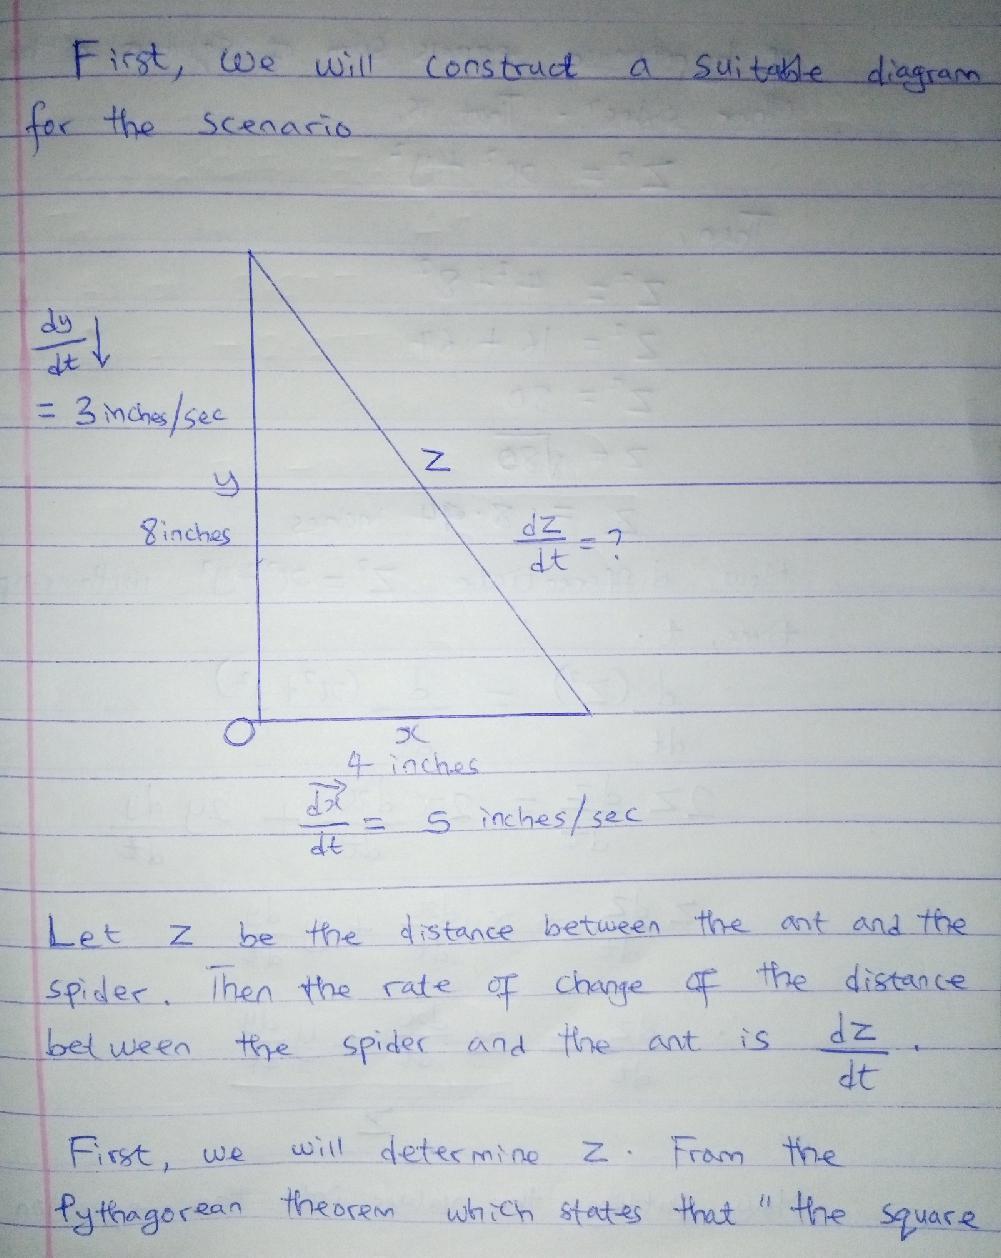 First, we will construct a suitable diagram
for the scenario
dy
dt ↓
= 3 inches/sec
y
8 inches
z
dz
dt = ?
O
x
4 inches
dx
dt = 5 inches/sec
Let z be the distance between the ant and the
spider. Then the rate of change of the distance
between the spider and the ant is dz
dt .
First, we will determine z. From the
Pythagorean theorem which states that " the square